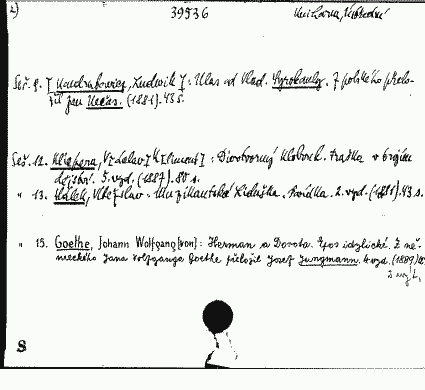 2) 39536 Knihovna, Národní
Seš. 9. [Kondratowicz, Ludwik]: Ulas od Vlad. Syrokomly. Z polského přelo-
žil Jan Nečas. (1881). 43 s.
Seš. 12. Klicpera, Václav K[liment]: Divotvorný klobouk. Fraška v trojím
dějství. 5. vyd. (1887). 80 s.
" 13. Hálek, Vítězslav: Muzikantská Liduška. Povídka. 2. vyd. (1881). 43 s.
" 15. Goethe, Johann Wolfgang [von]: Herman a Dorota. Epos idylické. Z ně-
meckého Jana Wolfganga Goethe přeložil Josef Jungmann. 4. vyd. (1889)
S